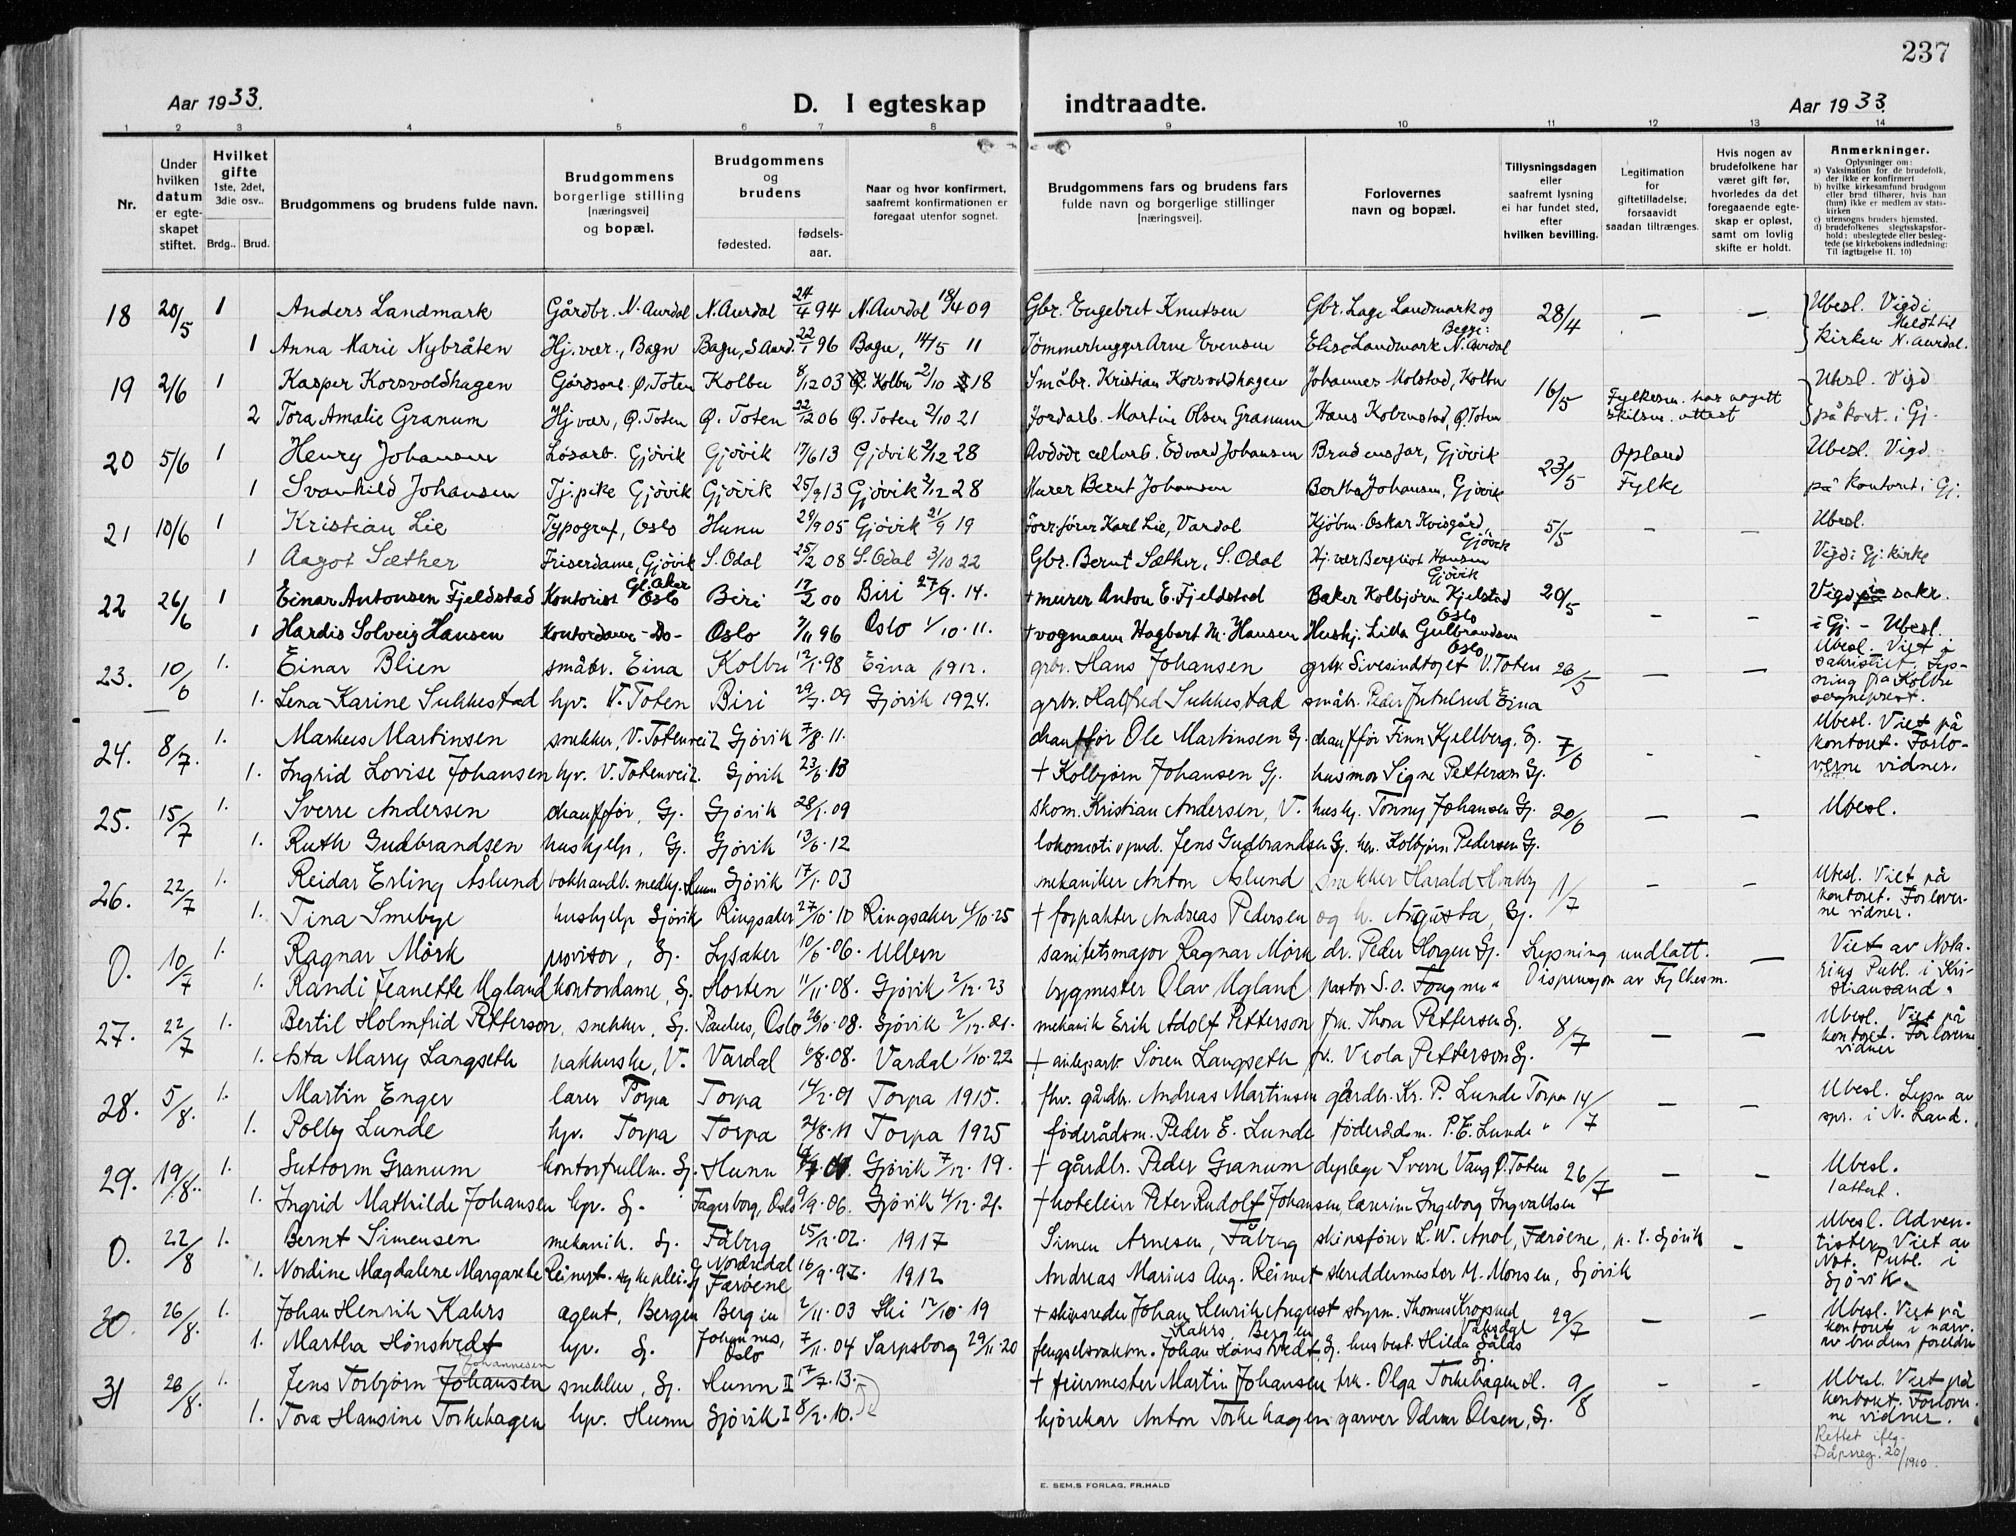 237
Aar 1933. D. I egteskap indtraadte. Aar 1933.
1 2 3 4 5 6 7 8 9 10 11 12 13 14
Nr.
Under hvilken datum er egteskapet stiftet.
Hvilket gifte 1ste, 2det, 3die osv.. Brdg.. Brud.
Brudgommens og brudens fulde navn.
Brudgommens borgerlige stilling [næringsvei] og bopæl.
Brudgommens og brudens fødested. fødselsaar.
Naar og hvor konfirmert, saafremt konfirmationen er foregaat utenfor sognet.
Brudgommens fars og brudens fars fulde navn og borgerlige stillinger [næringsvei].
Forlovernes navn og bopæl.
Tillysningsdagen eller saafremt lysning ei har fundet sted, efter hvilken bevilling.
Legitimation for giftetilladelse; forsaavidt saadan tiltrænges.
Hvis nogen av brudefolkene har været gift før, hvorledes da det foregaaende egteskap er opløst, samt om lovlig skifte er holdt.
Anmerkninger.
Oplysninger om:
a) Vaksination for de brudefolk, der ikke er konfirmert
b) hvilke kirkesamfund brudgom eller brud tilhører, hvis han (hun) ikke er medlem av statskirken
c) utensogns bruders hjemsted.
d) brudefolkenes slegtsskapsforhold: ubeslegtede eller beslegtede (se kirkebokens indledning: Til iagttagelse II. 10)
18 20/5 1 Anders Landmark Gårdbr. N. Aurdal N. Aurdal 24/4 94 N. Aurdal 18/4 09 Gbr. Engebret Knutsen Gbr. Lage Landmark og 28/4 – – Ubesl. Vigd i
1 Anna Marie Nybråten Hj.vær., Bagn Bagn, S. Aurd. 22/1 96 Bagn, 14/5 11 Tømmerhugger Arne Evensen Elise Landmark Begge: N. Aurdal kirken Meldt til N. Aurdal.
19 2/6 1 Kasper Korsvoldhagen Gårdsarb. Ø. Toten Kolbu 8/12 03 Kolbu 2/10 18 Småbr. Kristian Korsvoldhagen Johannes Molstad, Kolbu 16/5 Ubesl. Vigd
2 Tora Amalie Granum Hj.vær, Ø. Toten Ø. Toten 22/12 06 Ø. Toten 2/10 21 Jordarb. Martin Olsen Granum Hans Kolbustad, Ø. Toten Fylkesm. har avgitt skilsm. attest på kont. i Gj.
20 5/6 1 Henry Johansen Løsarb. Gjövik Gjövik 17/6 13 Gjövik 2/12 28 Avdöde cellarb. Edvard Johansen Brudens far, Gjövik 23/5 Opland Ubesl. Vigd
1 Svanhild Johansen Tj.pike Gjövik Gjövik 25/9 13 Gjövik 2/12 28 Murer Bernt Johansen Bertha Johansen, Gjövik Fylke på kontoret i Gj.
21 10/6 1 Kristian Lie Typograf, Oslo Hunn 29/9 05 Gjövik 21/9 19 Forr.fører Karl Lie, Vardal Kjöbm. Oskar Kvisgård, Gjövik 5/5 – – Ubesl.
1 Aagot Sæther Friserdame, Gjövik S. Odal 25/2 08 S. Odal 3/10 22 Gbr. Bernt Sæther, S. Odal Hj.vær Bergliot Hansen Gjövik Vigd i Gj. kirke
22 26/6 1 Einar Antonsen Fjeldstad Kontorist Gl. Aker Oslo Biri 17/2 00 Biri 27/9. 14. + murer Anton E. Fjeldstad Baker Kolbjørn Fjelstad Oslo 20/5 – – Vigd i sakr.
1 Hardis Solveig Hansen Kontordame – Do – Oslo 7/11 96 Oslo 1/10. 11. + vognmann Hagbart M. Hansen Hushj. Lilla Gulbrandsen Oslo i Gj. – Ubesl.
23. 10/6 1. Einar Blien småbr. Eina Kolbu 12/1.98 Eina 1912. grbr. Hans Johansen grbr. Sivesindtajet V. Toten 26/5 – – Ubesl. Viet i sakristiet. Lys-
1. Lena Karine Sukkestad hpv. V. Toten Biri 29/7.09 Gjövik 1924. grbr. Halfred Sukkestad småbr. Peder Jutulrud Eina ning fra Kolbu sogneprest.
24. 8/7. 1. Markus Martinsen snekker, V. Totenvei 2 Gjövik 7/8.11. chauffør Ole Martinsen Gj. chauffør Finn Kjellberg, Gj. 7/6 – – Ubesl. Viet på kontoret. Forlo-
1. Ingrid Lovise Johansen hpv. V. Totenvei 2. Gjövik 23/6.13 + Kolbjørn Johansen Gj. husmor Signe Pettersen Gj. verne vidner.
25. 15/7 1. Sverre Andersen chauffør, Gj. Gjövik 28/1.09 skom. Kristian Andersen, V. hushj. Tonny Johansen Gj. 20/6 – – Ubesl.
1. Ruth Gudbrandsen hushjelp, Gj. Gjövik 13/6.12 lokomotivpud. Jens Gudbrandsen Gj. hr. Kolbjørn Pedersen Gj.
26. 22/7 1. Reidar Erling Åslund bokhandl. medhj. Hunn Gjövik 17/1.03 mekaniker Anton Åslund snekker Harald Hveby 1/7 – – Ubesl. Viet på kontoret. Forlover-
1. Tina Smebye hushjelp Gjövik Ringsaker 27/10.10 Ringsaker 4/10.25 + forpakter Andreas Pedersen og h. Augusta, Gj. ne vidner.
0. 10/7 1. Ragnar Mørk provisor, Gj. Lysaker 10/6.06. Ullern sanitetsmajor Ragnar Mørk dr. Peder Horgen Gj. Lysning undlatt. – Viet av Nota-
1. Randi Jeanette Ugland kontordame, Gj. Horten 11/11.08. Gjövik 2/12.23 bygmester Olav Ugland pastor S.O. Fougner " Dispensasjon av Fylkesm. rius Publ. i Kristiansand.
27. 22/7 1. Bertil Holmfrid Petterson, snekker, Gj. Paulus, Oslo 26/10.08. Gjövik 2/12.21. mekanik Erik Adolf Petterson frk. Thora Pettersen Gj. 8/7 – – Ubesl. Viet på kontoret. Forloverne
1. Asta Marry Langseth pakkerske, V. Vardal 6/8.08. Vardal 1/10.22 + anlegsarb. Søren Langseth fr. Viola Petterson Gj. vidner
28. 5/8. 1. Martin Enger lærer Torpa Torpa 14/2.01 Torpa 1915. fhv. gårdbr. Andreas Martinsen gårdbr. Kr. P. Lunde Torpa 14/7 – – Ubesl. Lysn av
1. Polly Lunde hpv. Torpa Torpa 21/8.11 Torpa 1925 føderådsm. Peder E. Lunde føderådsm. P.E. Lunde " spr. i N. Land.
29. 19/8. 1. Guttorm Granum kontorfullm. Gj. Hunn Gjövik 7/12.19. + gårdbr. Peder Granum dyrlege Sverre Vang Ø. Toten 26/7 – – Ubesl.
1. Ingrid Mathilde Johansen hpv. Gj. Fagerborg, Oslo 9/9.06. Gjövik 4/12.21. + hoteleier Peter Rudolf Johansen, lærerinne Ingeborg Ingvaldsen 1 attest.
0. 22/8 1. Bernt Simensen mekanik. Gj. Fåberg 15/12.02. 1917 Simen Arnesen, Fåberg skipsfører L.W. Apol, Færøene, p.t. Gjövik – Ubesl. Adven-
1. Nordine Magdalene Margarethe Reinert. sykepleier Gj. Nordredal Færøene 16/9.97. 1912 Andreas Marius Aug. Reinert skreddermester M. Monsen, Gjövik tister. Viet av Not. Publ. i Gjövik.
30. 26/8. 1. Johan Henrik Kahrs agent, Bergen Bergen 2/11.03 Ski 12/10.19 + skipsreder Johan Henrik August Kahrs, Bergen styrm. Thomas Vaksdal 29/7 – – Ubesl. Viet på kontoret i nærv.
1. Martha Hønstvedt hpv. Gj. Johannes, Oslo 7/11.04 Sarpsborg 29/11.20 fengselsvaktm. Johan Hønstvedt, Gj. husbest. Hilda Sålds Gj. av brudens foreldre
31 26/8. 1. Jens Torbjørn Johansen Johannesen snekker, Gj. Hunn II 17/7.13. + feiermester Martin Johansen frk. Olga Torkehagen H. 9/8 – – Ubesl. Viet på kontoret. Forlover-
1. Tora Hansine Torkehagen hpv. Hunn Gjövik I 8/2.10. kjørekar Anton Torkehagen garver Odvar Olsen, Gj. ne vidner.
Rettet iflg. Dåpsreg. 20/1910.
E. SEM,S FORLAG, FR.HALD